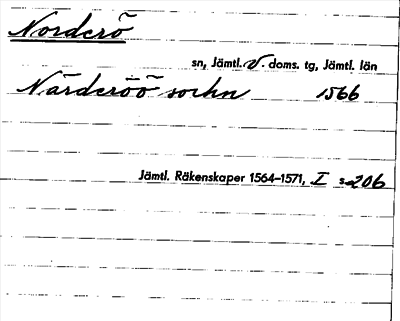 Norderö
sn, Jämtl. V. doms. tg, Jämtl. län
Närderöö sochn 1566
Jämtl. Räkenskaper 1564–1571, I s. 206